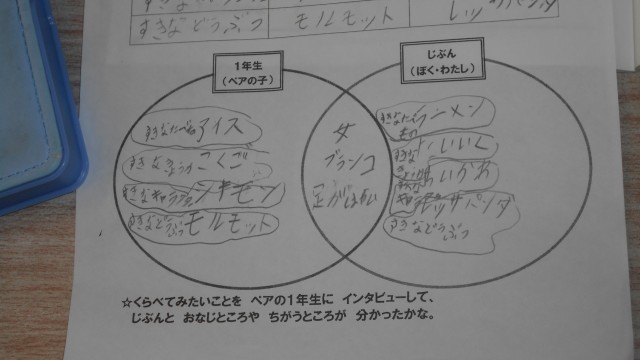 すきなどうぶつ モルモット
1年生
(ペアの子)
じぶん
(ぼく・わたし)
すきなたべもの アイス
すきなきょうか こくご
すきなキャラクラ シナモン
すきなどうぶつ モルモット
女
ブランコ
足がはやい
ラーメン
たいいく
レッサパンダ
すきなどうぶつ
☆くらべてみたいことを ペアの1年生に インタビューして、
じぶんと おなじところや ちがうところが 分かったかな。